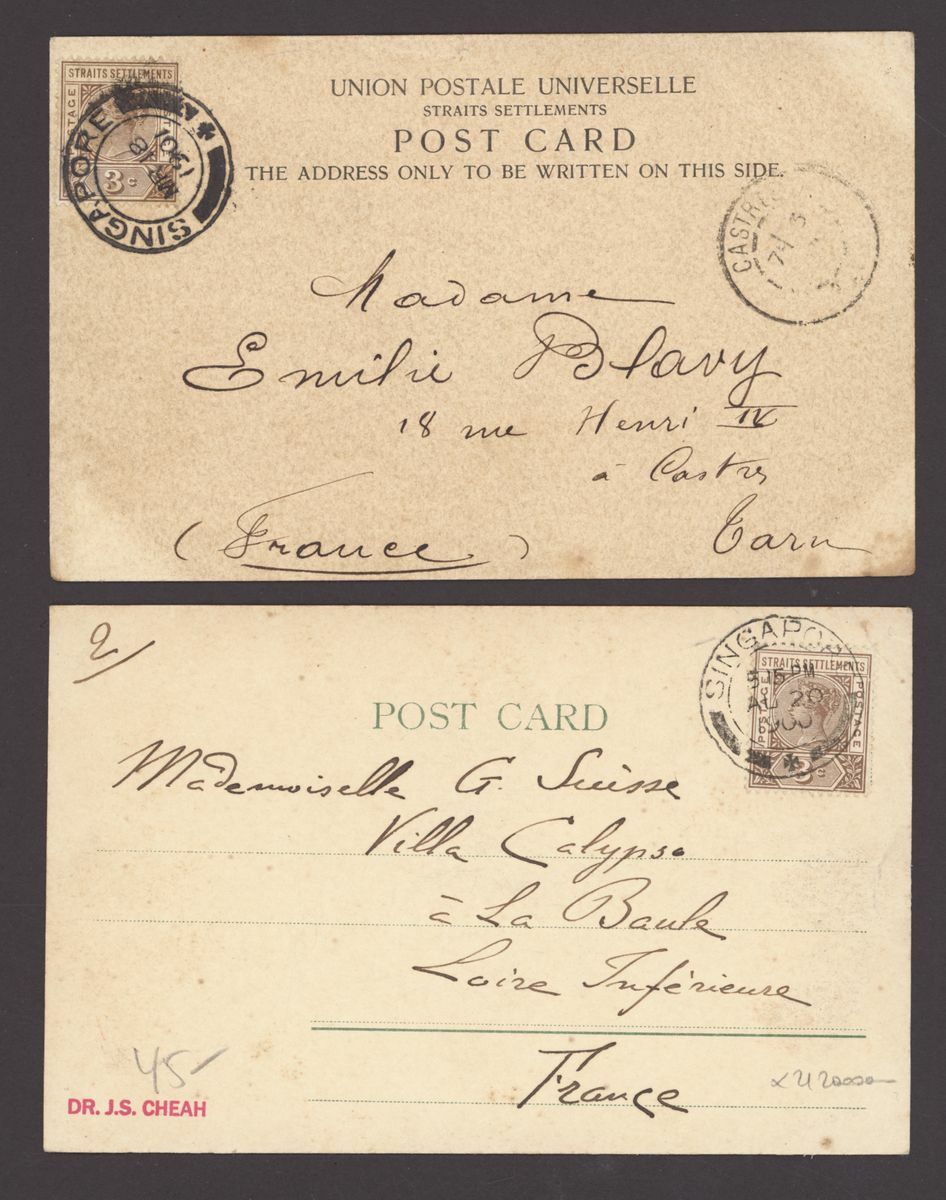 STRAITS SETTLEMENTS
POSTAGE
3c
SINGAPORE
MR 8
1901
UNION POSTALE UNIVERSELLE
STRAITS SETTLEMENTS
POST CARD
THE ADDRESS ONLY TO BE WRITTEN ON THIS SIDE.
Madame
Emilie Blavy
18 rue Henri IV
à Castres
(France) Tarn
2/
SINGAPOR
5.15 PM
AU 20
STRAITS SETTLEMENTS
POSTAGE POSTAGE
3c
POST CARD
Mademoiselle G. Suisse
Villa Calypso
à La Baule
Loire Inférieure
France
45-
DR. J.S. CHEAH